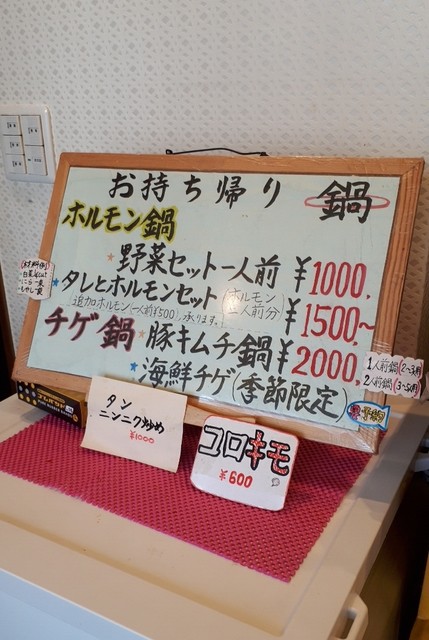 お持ち帰り 鍋
ホルモン鍋
野菜セット一人前 ¥1000,
タレとホルモンセット(ホルモン二人前分) ¥1500,~
追加ホルモン(一人前¥500)承ります。
チゲ鍋 豚キムチ鍋 ¥2000,
海鮮チゲ(季節限定)
1人前鍋(2~3用)
2人前鍋(3~
タン
ニンニク炒め
¥1000
コロキモ
¥600